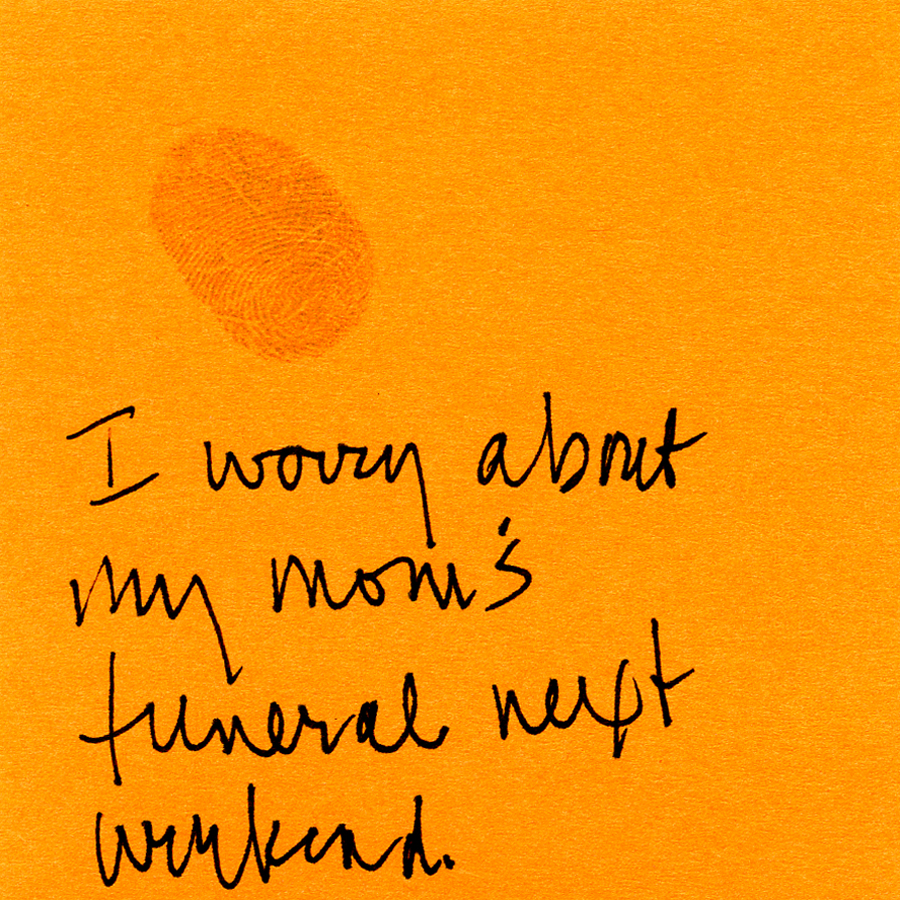 I worry about
my mom's
funeral next
weekend.